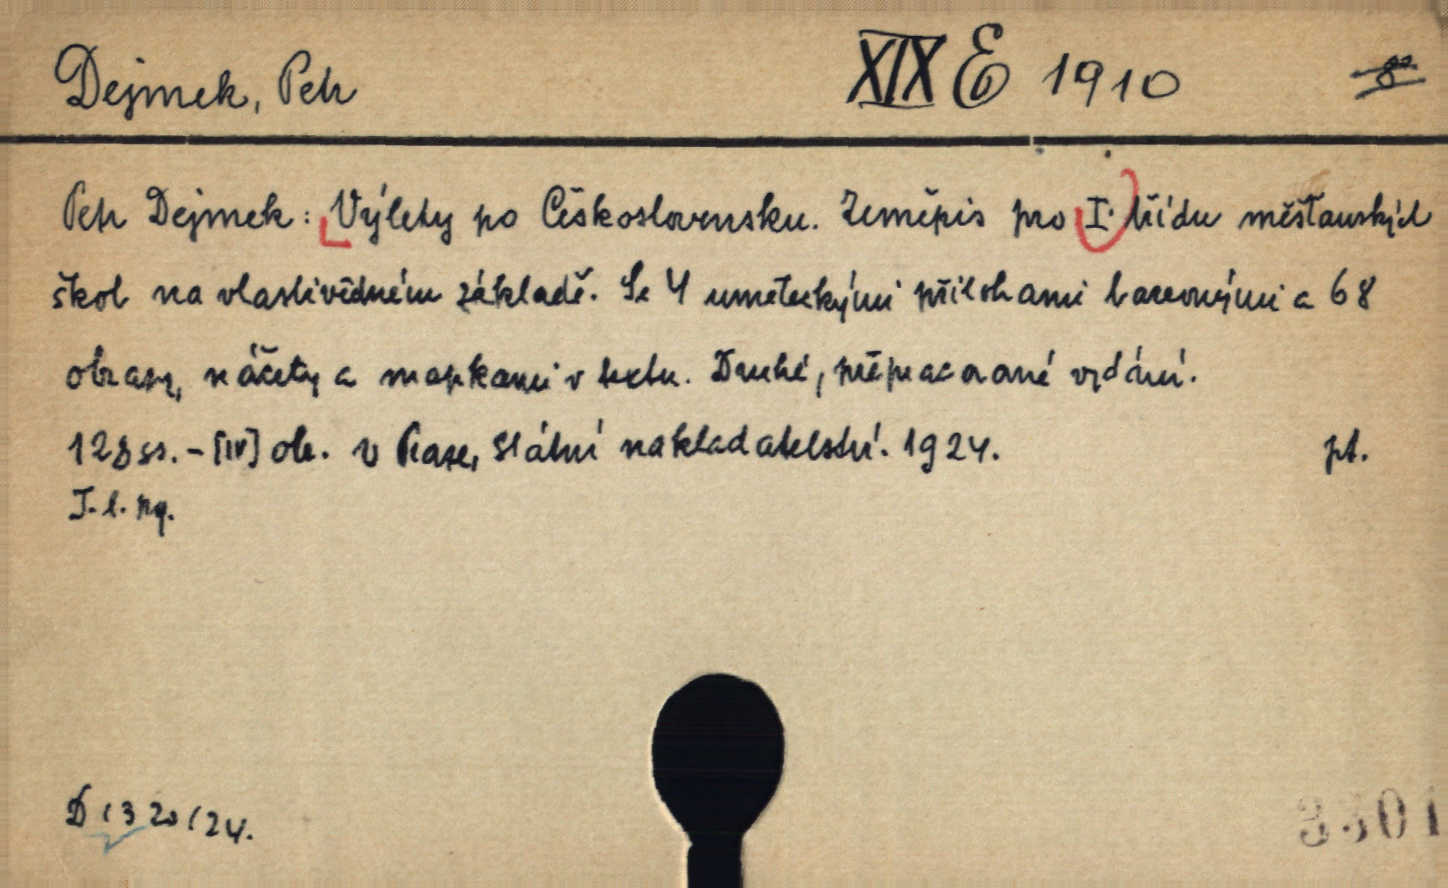 Dejmek, Petr XIX E 1910 8°
Petr Dejmek: Výlety po Československu. Zeměpis pro I. třídu měšťanských
škol na vlastivědném základě. Se 4 uměleckými přílohami barevnými a 68
obrazy, náčrty a mapkami v textu. Druhé, přepracované vydání.
128 ss. - [IV] obr. V Praze, Státní nakladatelství. 1924. pt.
D 1320/24.